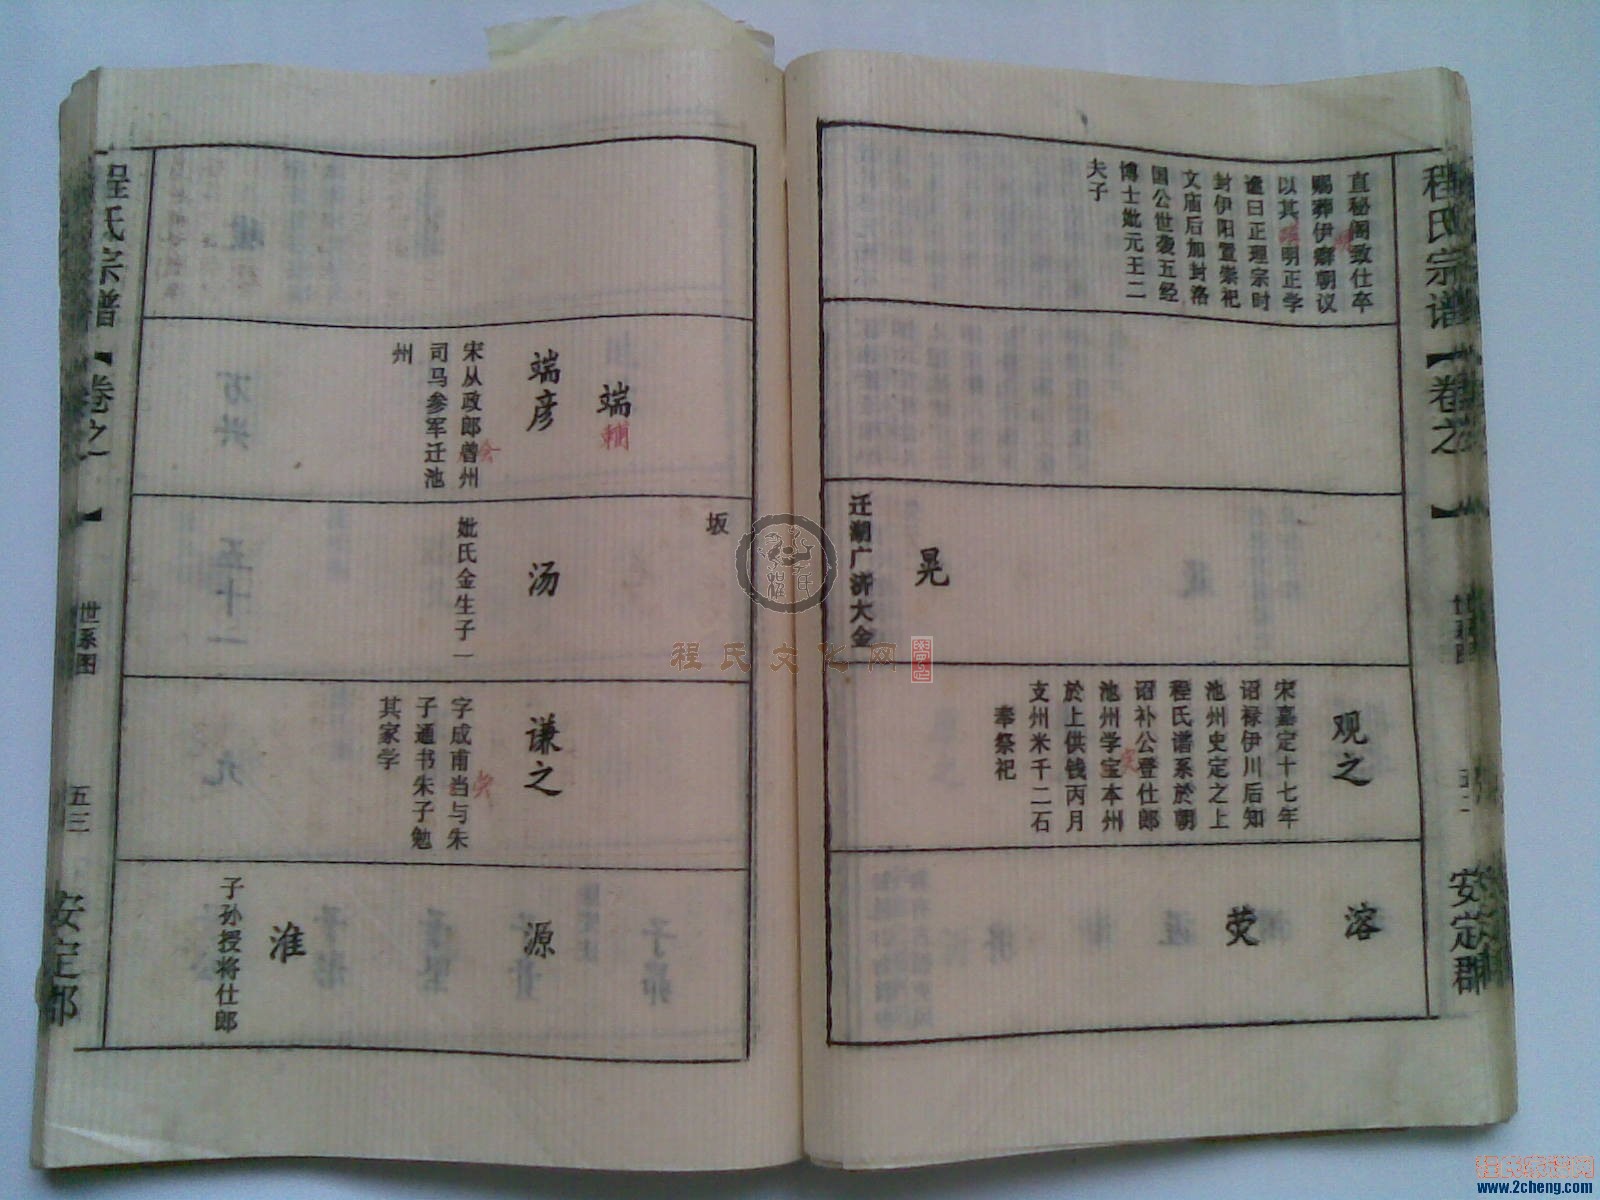 程氏宗谱
【卷之一】
世系图
安定郡
直秘阁致仕卒
赐葬伊癖朝议
以其 明正学
谥曰正理宗时
封伊阳置崇祀
文庙后加封洛
国公世袭五经
博士妣元王二
夫子
晃
迁湖广济大金
坂
观之
宋嘉定十七年
诏禄伊川后知
池州史定之上
程氏谱系於朝
诏补公登仕郎
池州学宝本州
於上供钱丙月
支州米千二石
奉祭祀
溶
荧
端
辅
端彦
宋从政郎曾州
司马参军迁池
州
汤
妣氏金生子一
谦之
字成甫当与朱
子通书朱子勉
其家学
源
淮
子孙授将仕郎
程氏宗谱
【卷之一】
世系图
五三
安定郡
程氏文化网
www.2cheng.com